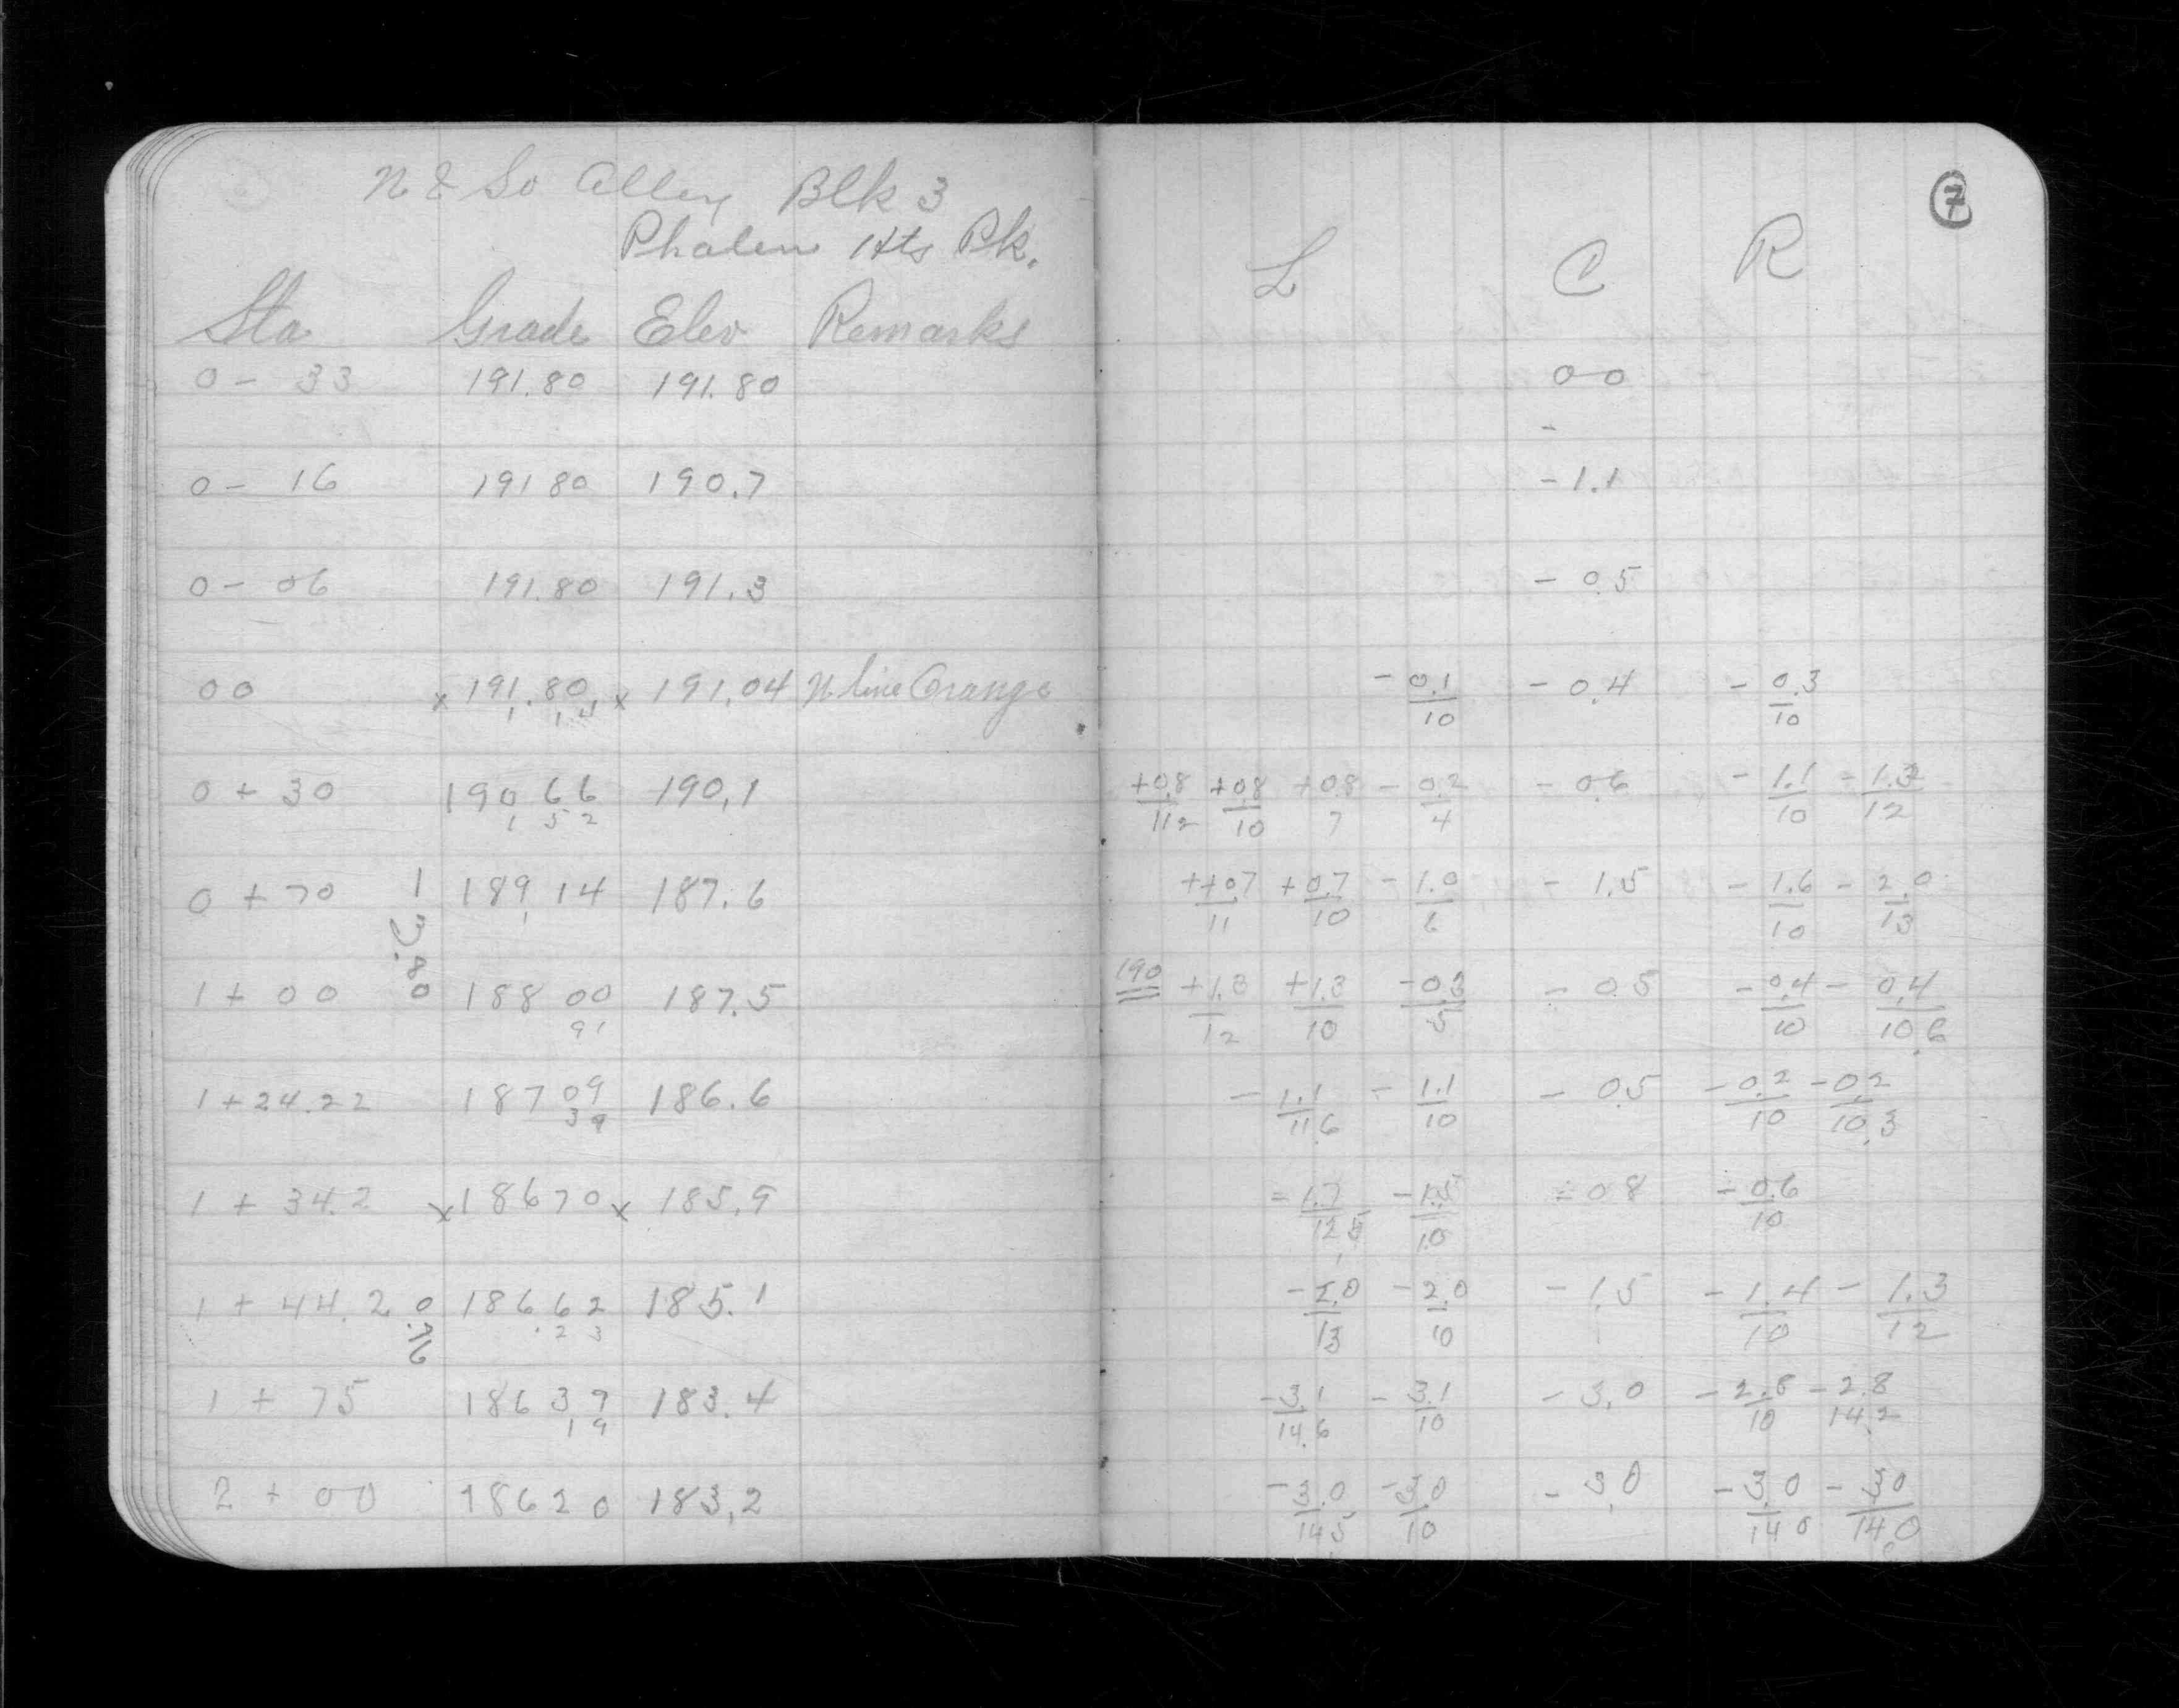 N & So Alley Blk 3
Phalen Hts Pk.
7
L C R
Sta Grade Elev Remarks
0 - 33 191.80 191.80 0 0
-
0 - 16 191 80 190.7 - 1.1
0 - 06 191.80 191.3 - 0.5
00 x 191.80 x 191.04 N line Orange - 0.1/10 - 0.4 - 0.3/10
1 1 4
0 + 30 190 66 190.1 +0.8/11.2 +0.8/10 +0.8/7 - 0.2/4 - 0.6 - 1.1/10 - 1.3/12
1 5 2
0 + 70 189.14 187.6 ++0.7/11 +0.7/10 - 1.0/6 - 1.5 - 1.6/10 - 2.0/13
1
1 3.80
1 + 00 188 00 187.5 190 +1.3/12 +1.3/10 -0.3/5 - 0.5 - 0.4/10 - 0.4/10.6
9 1
1 + 24.22 187 09 186.6 - 1.1/11.6 - 1.1/10 - 0.5 - 0.2/10 - 0.2/10.3
3 9
1 + 34.2 x 186 70 x 185.9 - 1.7/12.5 - 1.5/10 - 0.8 - 0.6/10
1 + 44.2 186.62 185.1 - 2.0/13 - 2.0/10 - 1.5 - 1.4/10 - 1.3/12
. 2 3
0.76
1 + 75 186 39 183.4 - 3.1/14.6 - 3.1/10 - 3.0 - 2.8/10 - 2.8/14.2
1 9
2 + 00 186 20 183.2 - 3.0/14.5 - 3.0/10 - 3.0 - 3.0/14 0 - 3.0/14.0